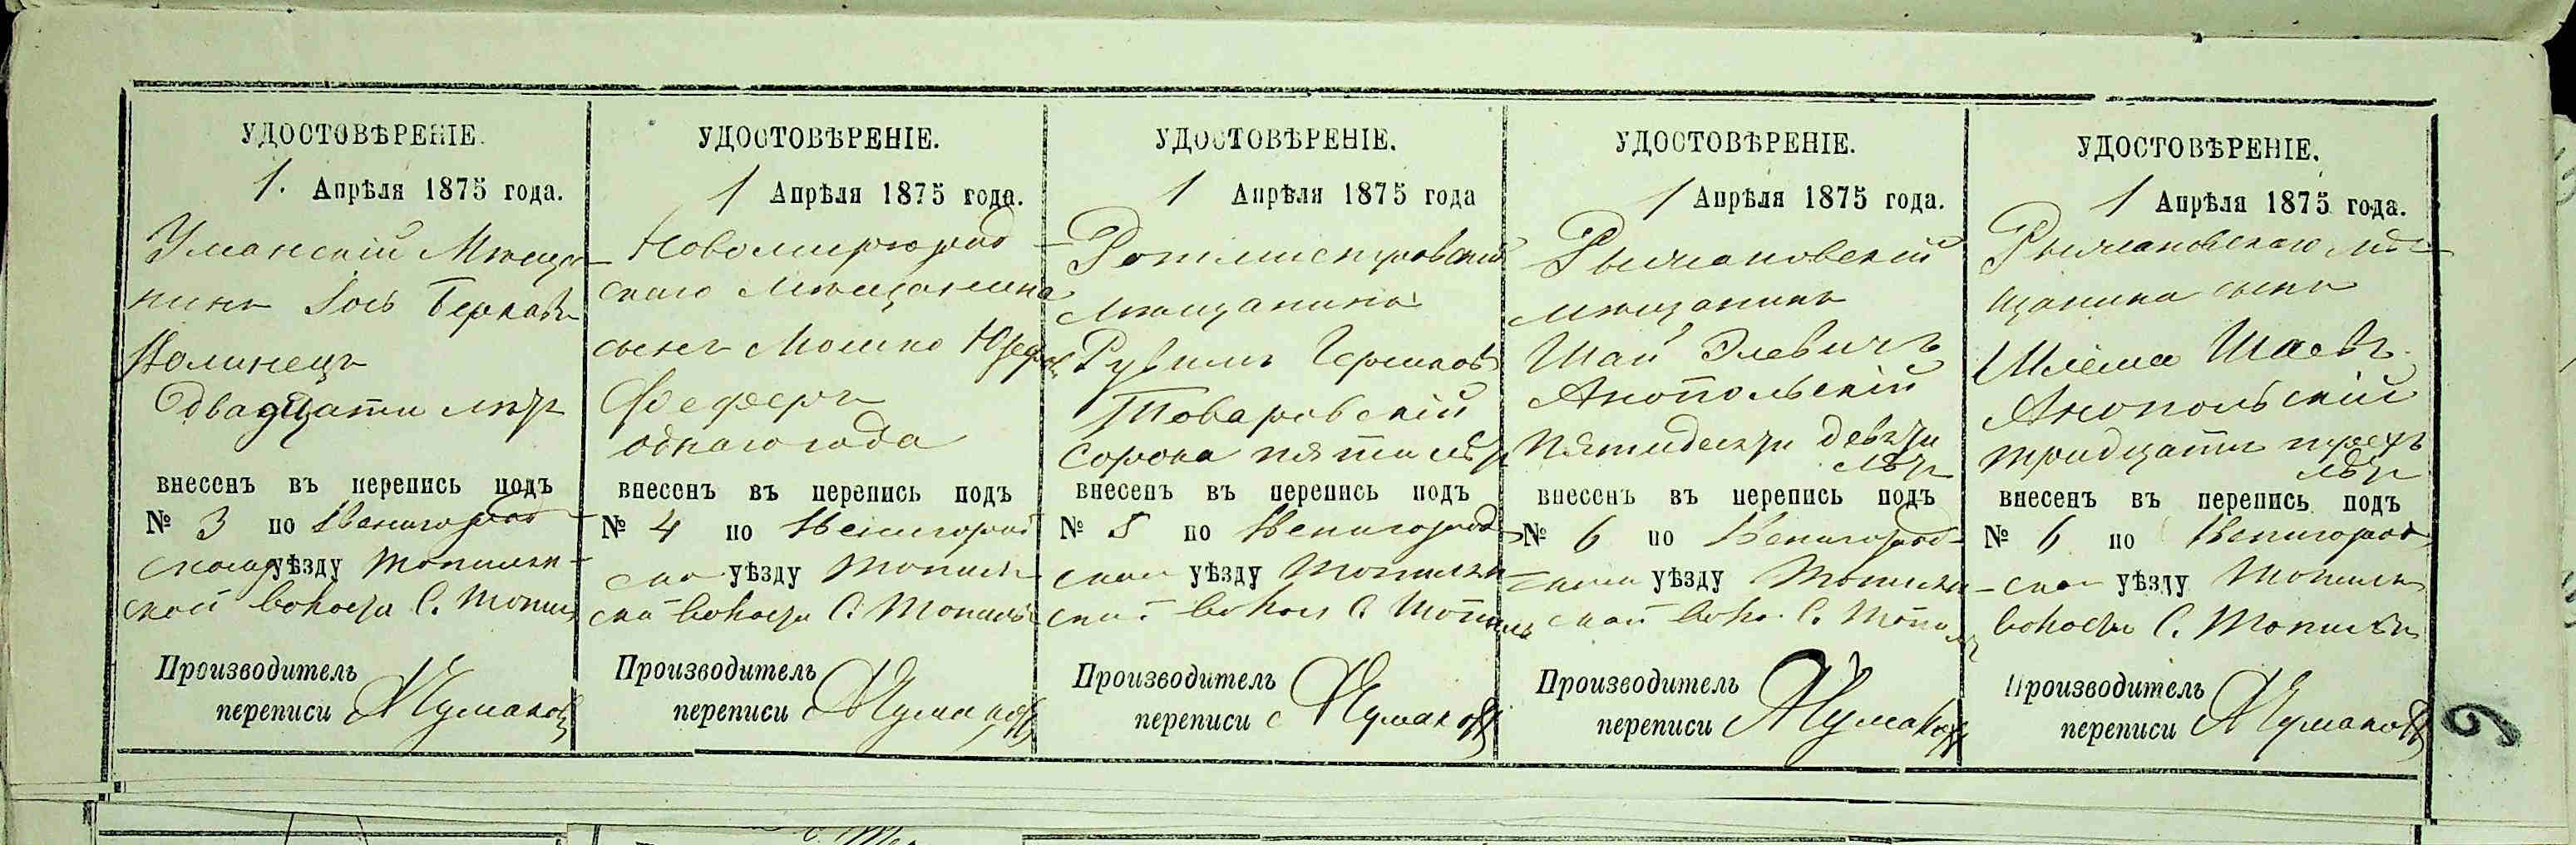 УДОСТОВѢРЕНІЕ.
1. Апрѣля 1875 года.
Уманскій Мѣща-
нинъ Іось Берковъ
Долинецъ
Двадцати лѣт
внесенъ въ перепись подъ
№ 3 по Звенигород-
скому уѣзду Топильн-
ской волости С. Топил
Производитель
переписи АЧумаковъ
УДОСТОВѢРЕНІЕ.
1 Апрѣля 1875 года.
Новомиргород-
скаго мѣщанина
сынъ Мошко
Фефферъ
однаго года
внесенъ въ перепись подъ
№ 4 по Звенигород
ско уѣзду Топильн
ской волости С. Топиль
Производитель
переписи АЧумаковъ
УДОСТОВѢРЕНІЕ.
1 Апрѣля 1875 года
Ротмистровскій
мѣщанинъ
Рувимъ Гершковъ
Товаровскій
Сорока пяти лѣт
внесенъ въ перепись подъ
№ 5 по Звенигород
ском уѣзду Топильн-
ской волос С. Топиль
Производитель
переписи АЧумаковъ
УДОСТОВѢРЕНІЕ.
1 Апрѣля 1875 года.
Рыжановскій
мѣщанинъ
Шая Элевичъ
Анопольскій
Пятидесяти девяти
лѣт
внесенъ въ перепись подъ
№ 6 по Звенигород-
ском уѣзду Топильн-
ской воло. С. Топил
Производитель
переписи АЧумаковъ
УДОСТОВѢРЕНІЕ.
1 Апрѣля 1875 года.
Рыжановскаго мѣ-
щанина сынъ
Шлема Шаевъ
Анопольскій
тридцати трехъ
лѣт
внесенъ въ перепись подъ
№ 6 по Звенигород
ском уѣзду Топильн
волости С. Топильн
Производитель
переписи АЧумаковъ
9